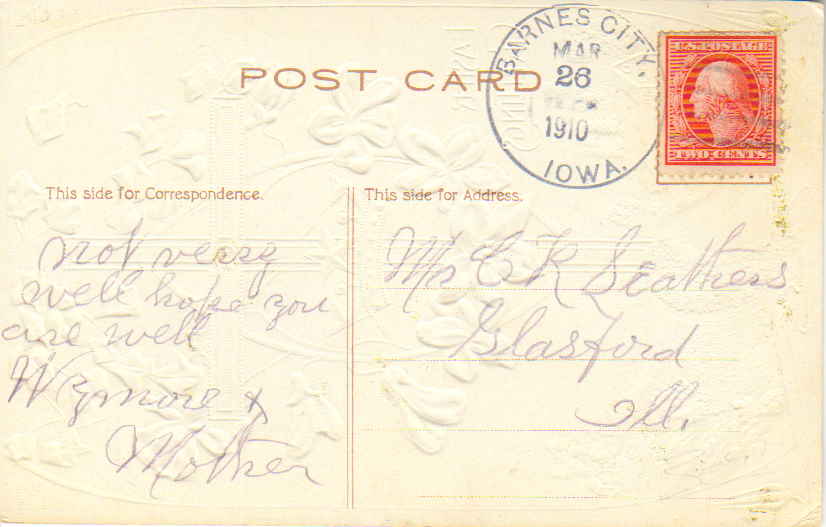 POST CARD
BARNES CITY,
MAR
26
1910
IOWA.
U.S. POSTAGE
TWO CENTS
This side for Correspondence.
not very
well hope you
are well
Wymore &
Mother
This side for Address.
C R
Glasford
Ill.